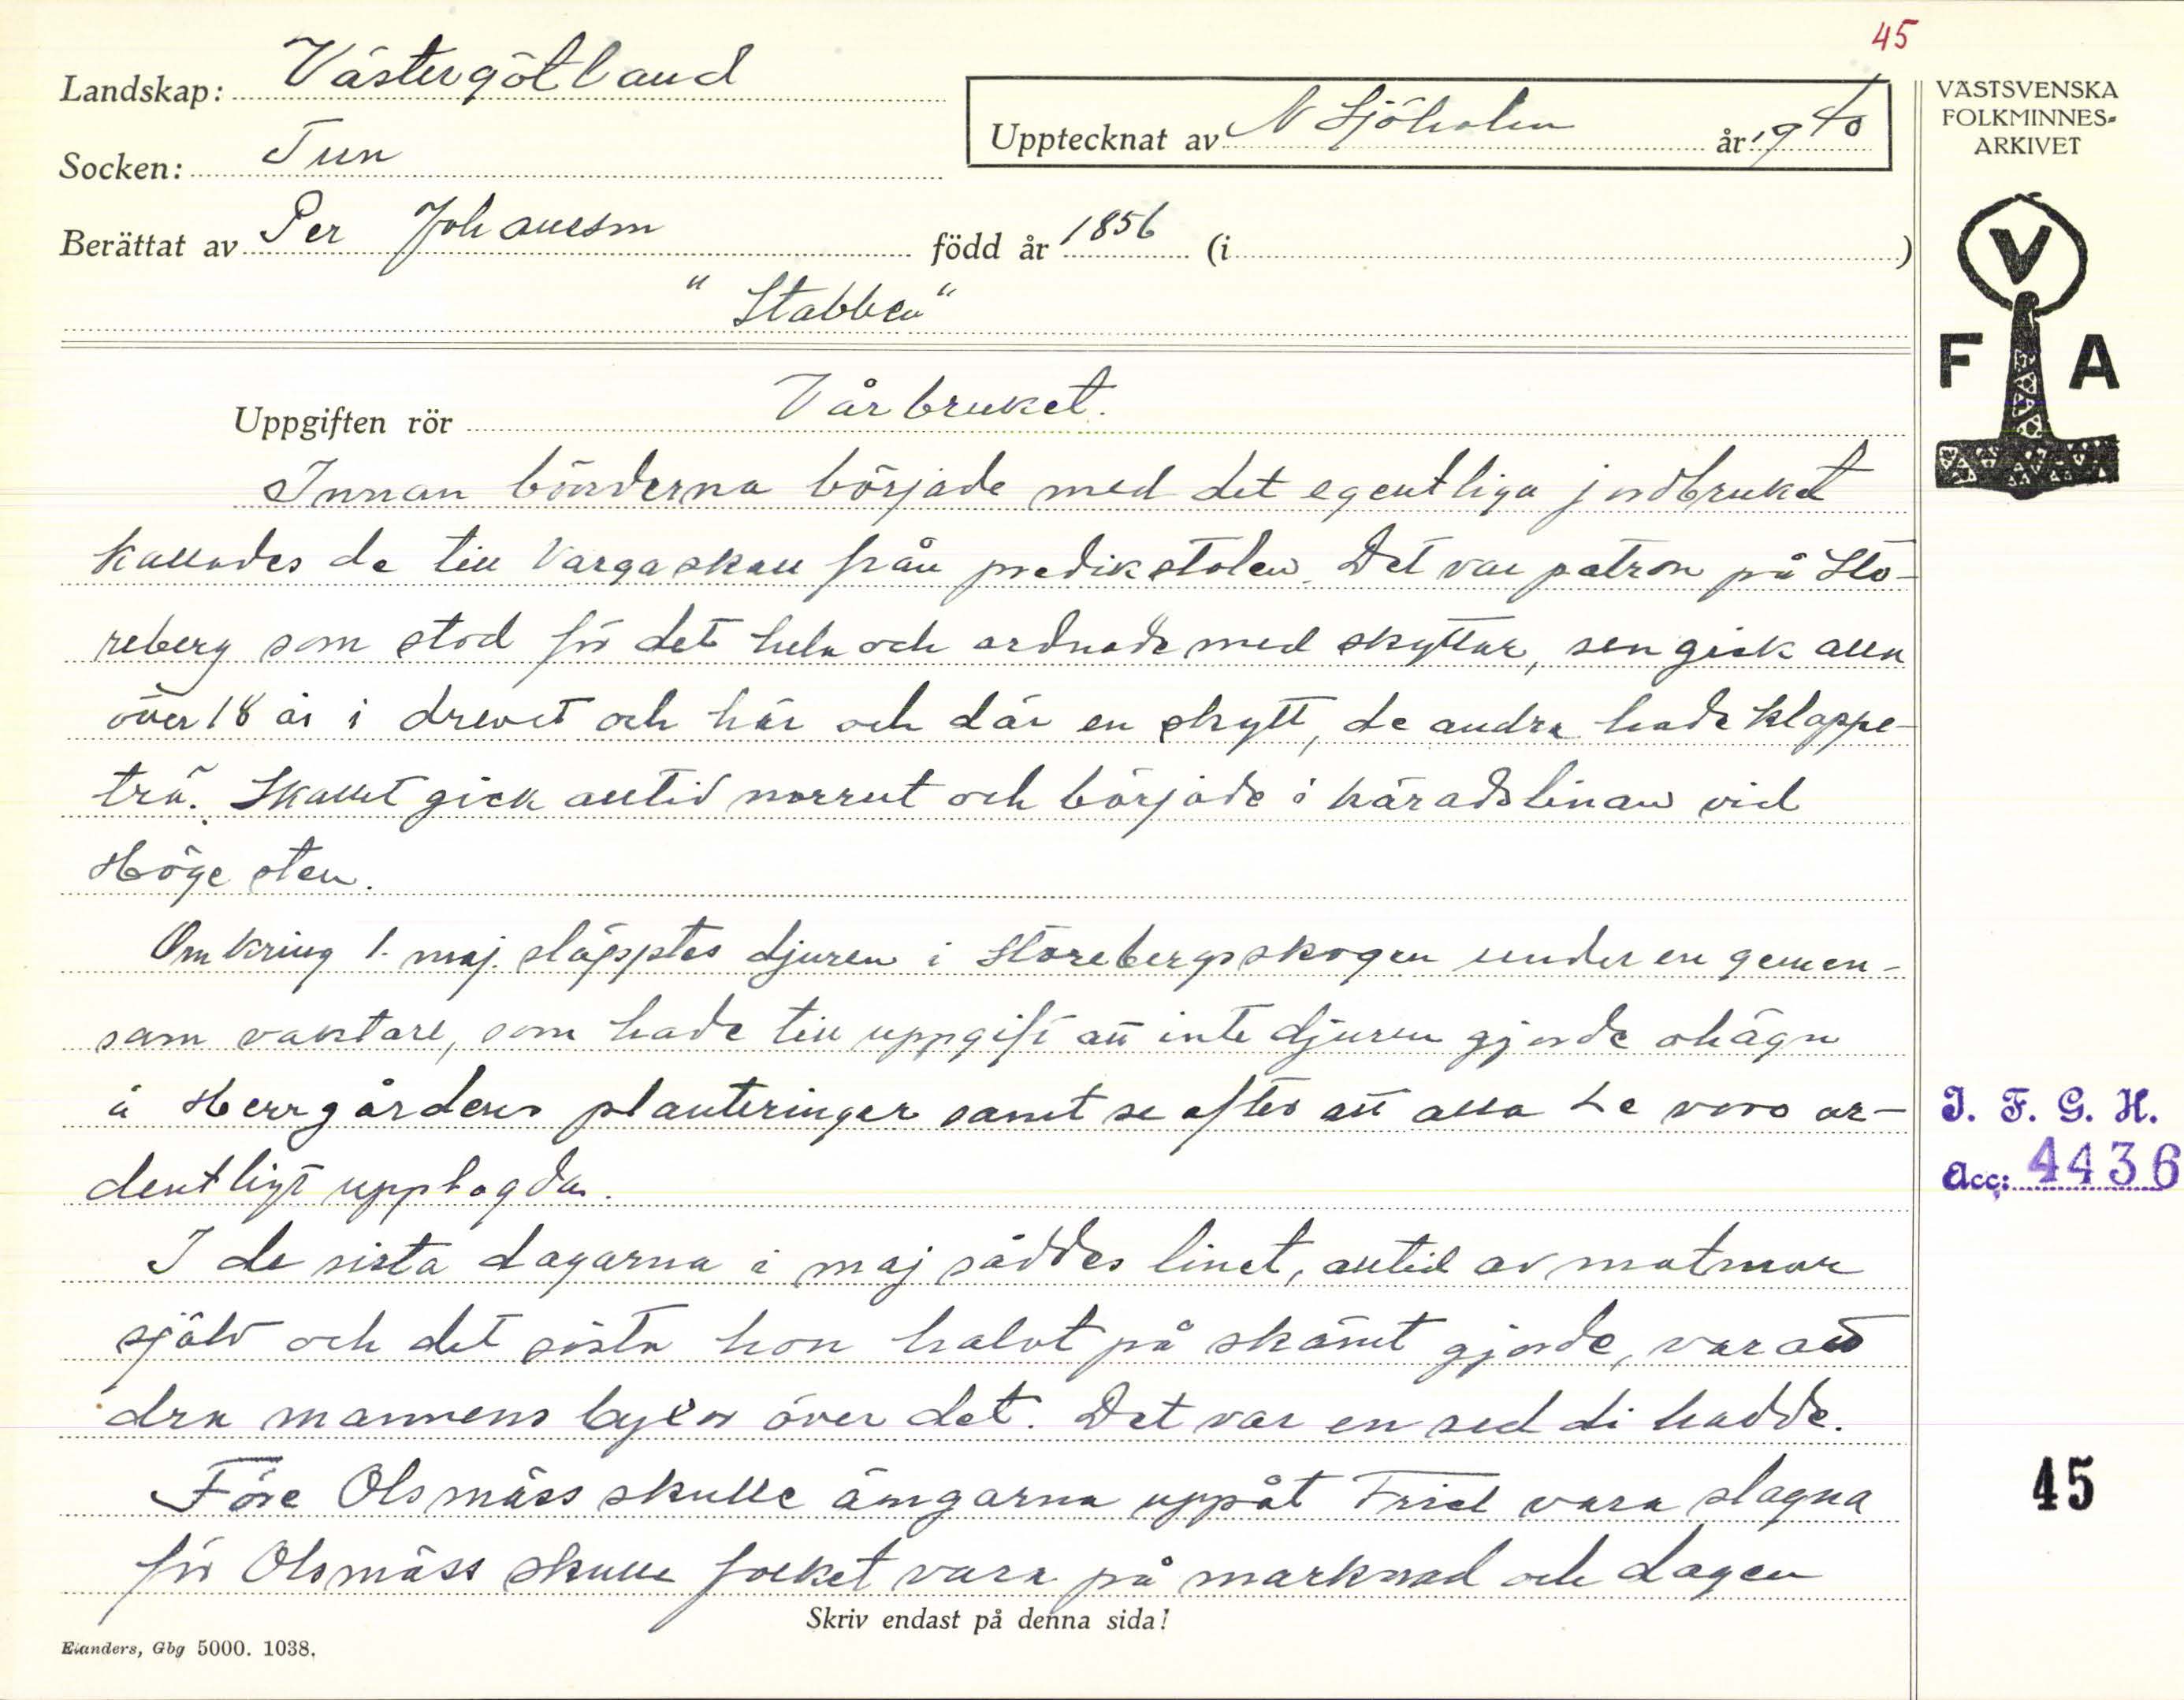 45
Landskap: Västergötland
Upptecknat av N Sjöholm år 1940
VÄSTSVENSKA
FOLKMINNES-
ARKIVET
Socken: Tun
Berättat av Per Johansson född år 1856 (i )
"Stabben"
V
F A
Uppgiften rör Vårbruket.
Innan bönderna började med det egentliga jordbruket
kallades de till Vargaskall från predikstolen. Det var patron på Sto-
reberg som stod för det hela och ordnade med skyttar, sen gick alla
över 18 år i drevet och här och där en skytt, de andra hade klappe-
trä. Skallet gick alltid norrut och började i häradslinan vid
Höge sten.
Omkring 1. maj. släpptes djuren i Storebergsskogen under en gemen-
sam vaktare, som hade till uppgift att inte djuren gjorde ohägn
å Herrgårdens planteringar samt se efter att alla le voro or-
dentligt upplagda.
I de sista dagarna i maj såddes linet, alltid av matmor
själv och det sista hon halvt på skämt gjorde, var att
dra mannens byxor över det. Det var en sed di hadde.
Före Olsmäss skulle ängarna uppåt Friel vara slagna
för Olsmäss skulle folket vara på marknad och dagen
Skriv endast på denna sida!
Elanders, Gbg 5000. 1038.
I. F. G. H.
Acc: 4436
45